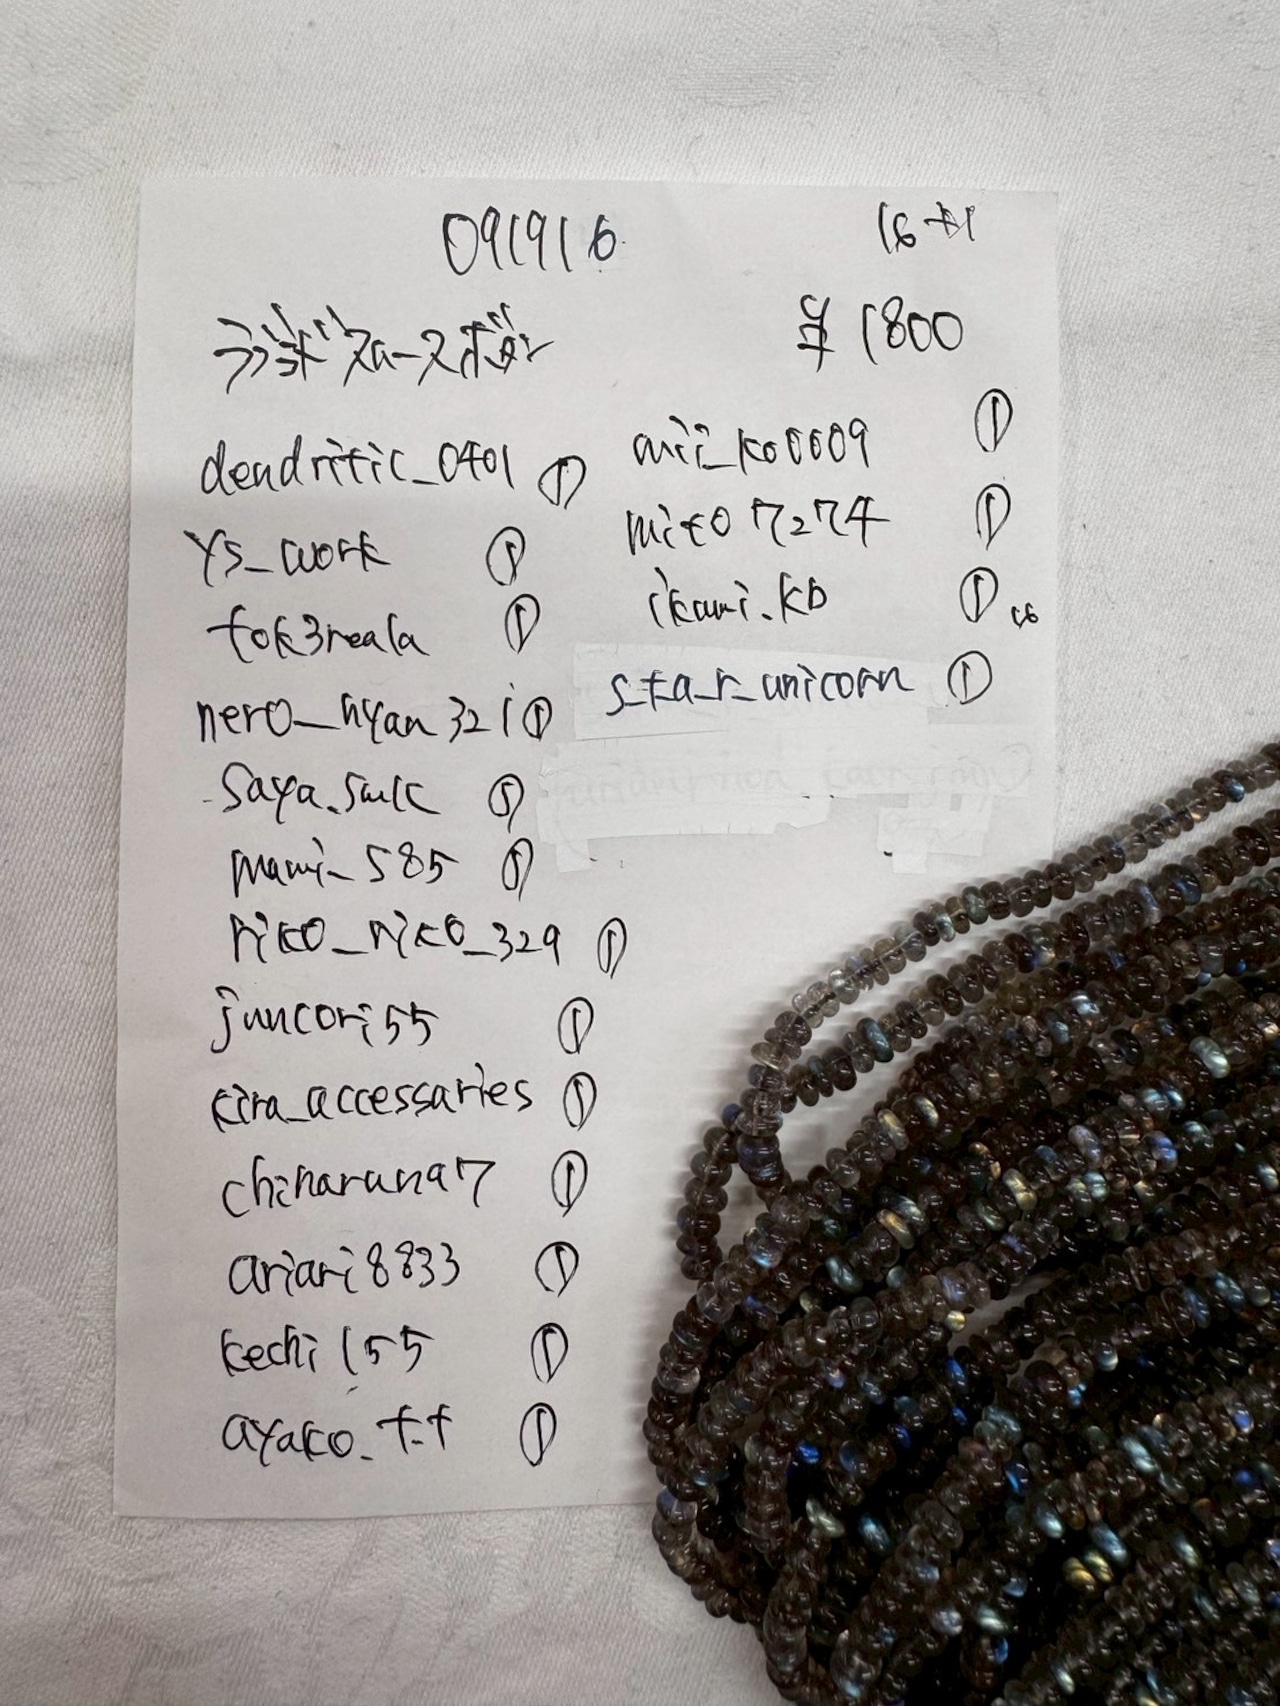 091916
16+1
¥1800
dendritic_0401 ①
ys_work ①
tok3reala ①
nero_nyan321 ①
saya.smk ①
mami_585 ①
riko_riko_329 ①
juncori55 ①
kira_accessaries ①
chiharuna97 ①
ariari8833 ①
kechi155 ①
ayako_t.t ①
mii_ko0009 ①
mito7274 ①
ikumi.kb ① 16
s_ta_r_unicorn ①